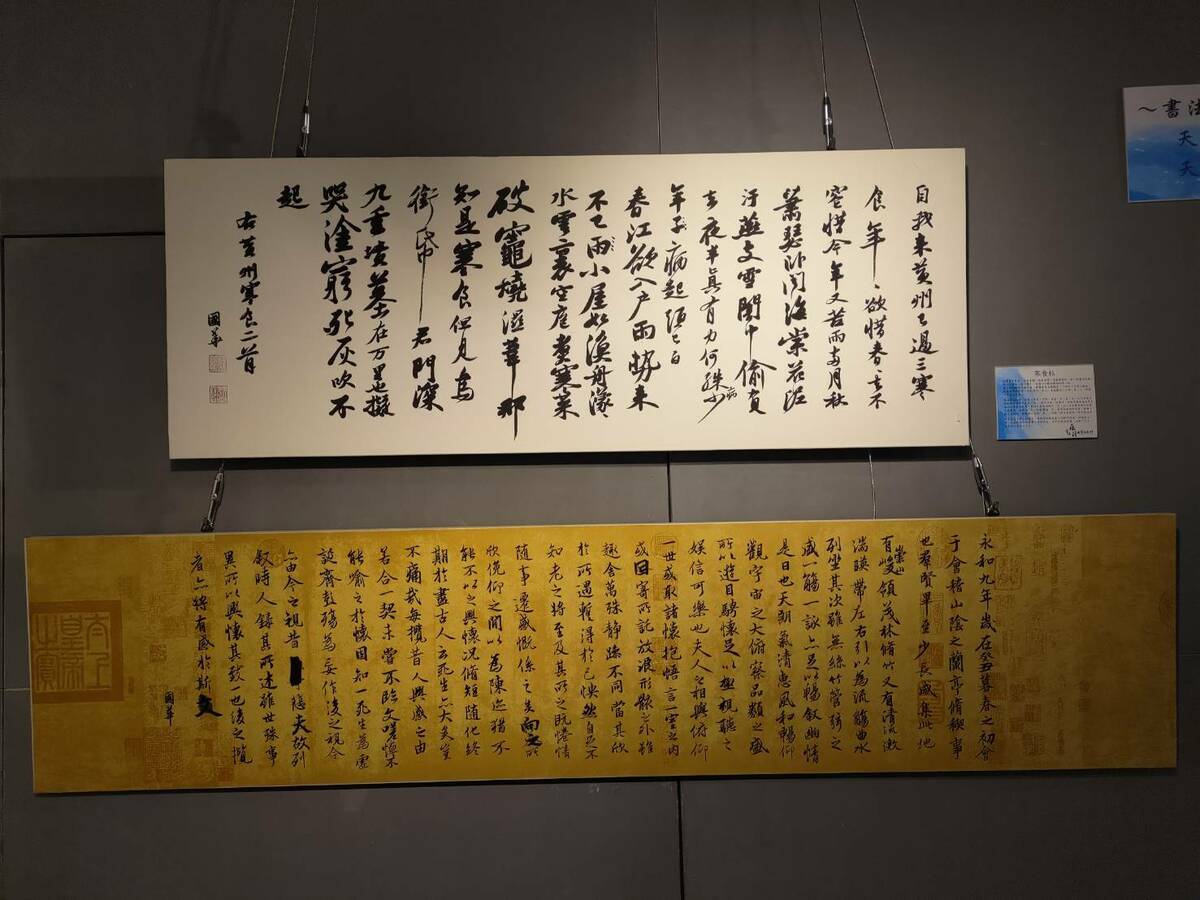 ～書法
天
天
自我来黄州已過三寒
食年〻欲惜春〻去不
容惜今年又苦雨兩月秋
蕭瑟卧聞海棠花泥
汙燕支雪闇中偷負
去夜半真有力何殊少
年子病起須已白
春江欲入户雨勢来
不已雨小屋如漁舟濛〻
水雲裏空庖煮寒菜
破竈燒濕葦那
知是寒食但見烏
銜帋君門深
九重墳墓在万里也擬
哭塗窮死灰吹不
起
右黄州寒食二首
國華
寒食帖
永和九年歲在癸丑暮春之初會
于會稽山陰之蘭亭脩稧事
也羣賢畢至少長咸集此地
有崇山峻領茂林脩竹又有清流激
湍暎帶左右引以為流觴曲水
列坐其次雖無絲竹管弦之
盛一觴一詠亦足以暢叙幽情
是日也天朗氣清惠風和暢仰
觀宇宙之大俯察品類之盛
所以遊目騁懷足以極視聽之
娱信可樂也夫人之相與俯仰
一世或取諸懷抱悟言一室之内
或因寄所託放浪形骸之外雖
趣舍萬殊静躁不同當其欣
於所遇暫得於己怏然自足不
知老之將至及其所之既惓情
隨事遷感慨係之矣向之所
欣俛仰之間以為陳迹猶不
能不以之興懷況脩短隨化終
期於盡古人云死生亦大矣豈
不痛哉每攬昔人興感之由
若合一契未嘗不臨文嗟悼不
能喻之於懷固知一死生為虛
誕齊彭殤為妄作後之視今
亦由今之視昔悲夫故列
叙時人錄其所述雖世殊事
異所以興懷其致一也後之攬
者亦將有感於斯文
國華
太上皇帝之寶